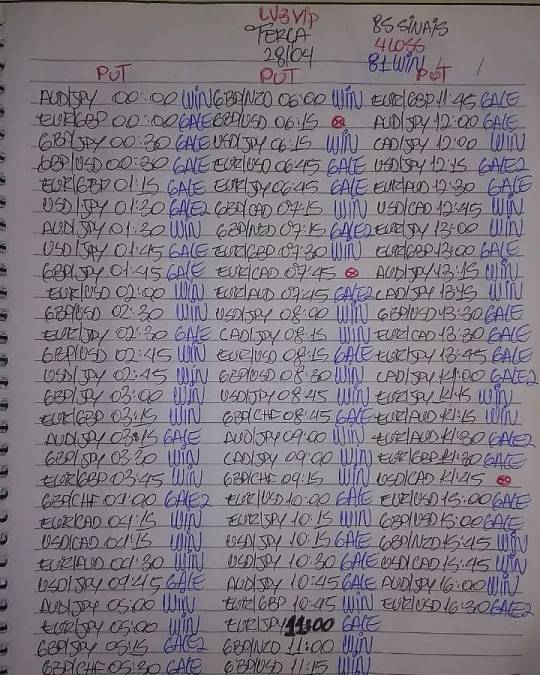 LV3 VIP
TERCA
28/04
85 SINAIS
4 LOSS
81 WIN
PUT PUT PUT
AUD|JPY 00:00 WIN GBP|NZD 06:00 WIN EUR|GBP 11:45 GALE
EUR|GBP 00:00 GALE GBP|USD 06:15 ⊗ AUD|JPY 12:00 GALE
GBP|JPY 00:30 GALE USD|JPY 06:15 WIN CAD|JPY 12:00 WIN
GBP|USD 00:30 GALE EUR|USD 06:45 GALE USD|JPY 12:15 GALE2
EUR|GBP 01:15 GALE EUR|JPY 06:45 GALE EUR|AUD 12:30 GALE
USD|JPY 01:30 GALE2 GBP|CAD 07:15 WIN USD|CAD 12:45 WIN
AUD|JPY 01:30 WIN GBP|NZD 07:15 GALE2 EUR|JPY 13:00 WIN
USD|JPY 01:45 GALE EUR|GBP 07:30 WIN EUR|GBP 13:00 GALE
GBP|JPY 01:45 GALE EUR|CAD 07:45 ⊗ AUD|JPY 13:15 WIN
EUR|USD 02:00 WIN EUR|AUD 07:45 GALE2 CAD|JPY 13:15 WIN
GBP|USD 02:30 WIN USD|JPY 08:00 WIN GBP|USD 13:30 GALE
EUR|JPY 02:30 GALE CAD|JPY 08:15 WIN EUR|CAD 13:30 GALE
GBP|USD 02:45 WIN EUR|USD 08:15 GALE EUR|JPY 13:45 GALE
USD|JPY 02:45 WIN GBP|USD 08:30 WIN CAD|JPY 14:00 GALE2
GBP|JPY 03:00 WIN USD|JPY 08:45 WIN EUR|JPY 14:15 WIN
EUR|GBP 03:15 WIN GBP|CHF 08:45 GALE EUR|AUD 14:15 WIN
AUD|JPY 03:15 GALE AUD|JPY 09:00 WIN EUR|AUD 14:30 GALE2
GBP|JPY 03:30 WIN CAD|JPY 09:00 WIN EUR|GBP 14:30 GALE
EUR|GBP 03:45 WIN GBP|CHF 09:15 WIN USD|CAD 14:45 ⊗
GBP|CHF 04:00 GALE2 EUR|USD 10:00 GALE EUR|USD 15:00 GALE
EUR|CAD 04:15 WIN EUR|JPY 10:15 WIN GBP|USD 15:00 GALE
USD|CAD 04:15 WIN USD|JPY 10:15 GALE GBP|NZD 15:45 WIN
EUR|AUD 04:30 WIN USD|JPY 10:30 GALE USD|CAD 15:45 WIN
USD|JPY 04:45 GALE AUD|JPY 10:45 GALE AUD|JPY 16:00 WIN
AUD|JPY 05:00 WIN EUR|GBP 10:45 WIN EUR|USD 16:30 GALE2
EUR|JPY 05:00 WIN EUR|JPY 11:00 GALE
GBP|JPY 05:15 GALE2 GBP|NZD 11:00 WIN
GBP|CHF 05:30 GALE GBP|USD 11:15 WIN